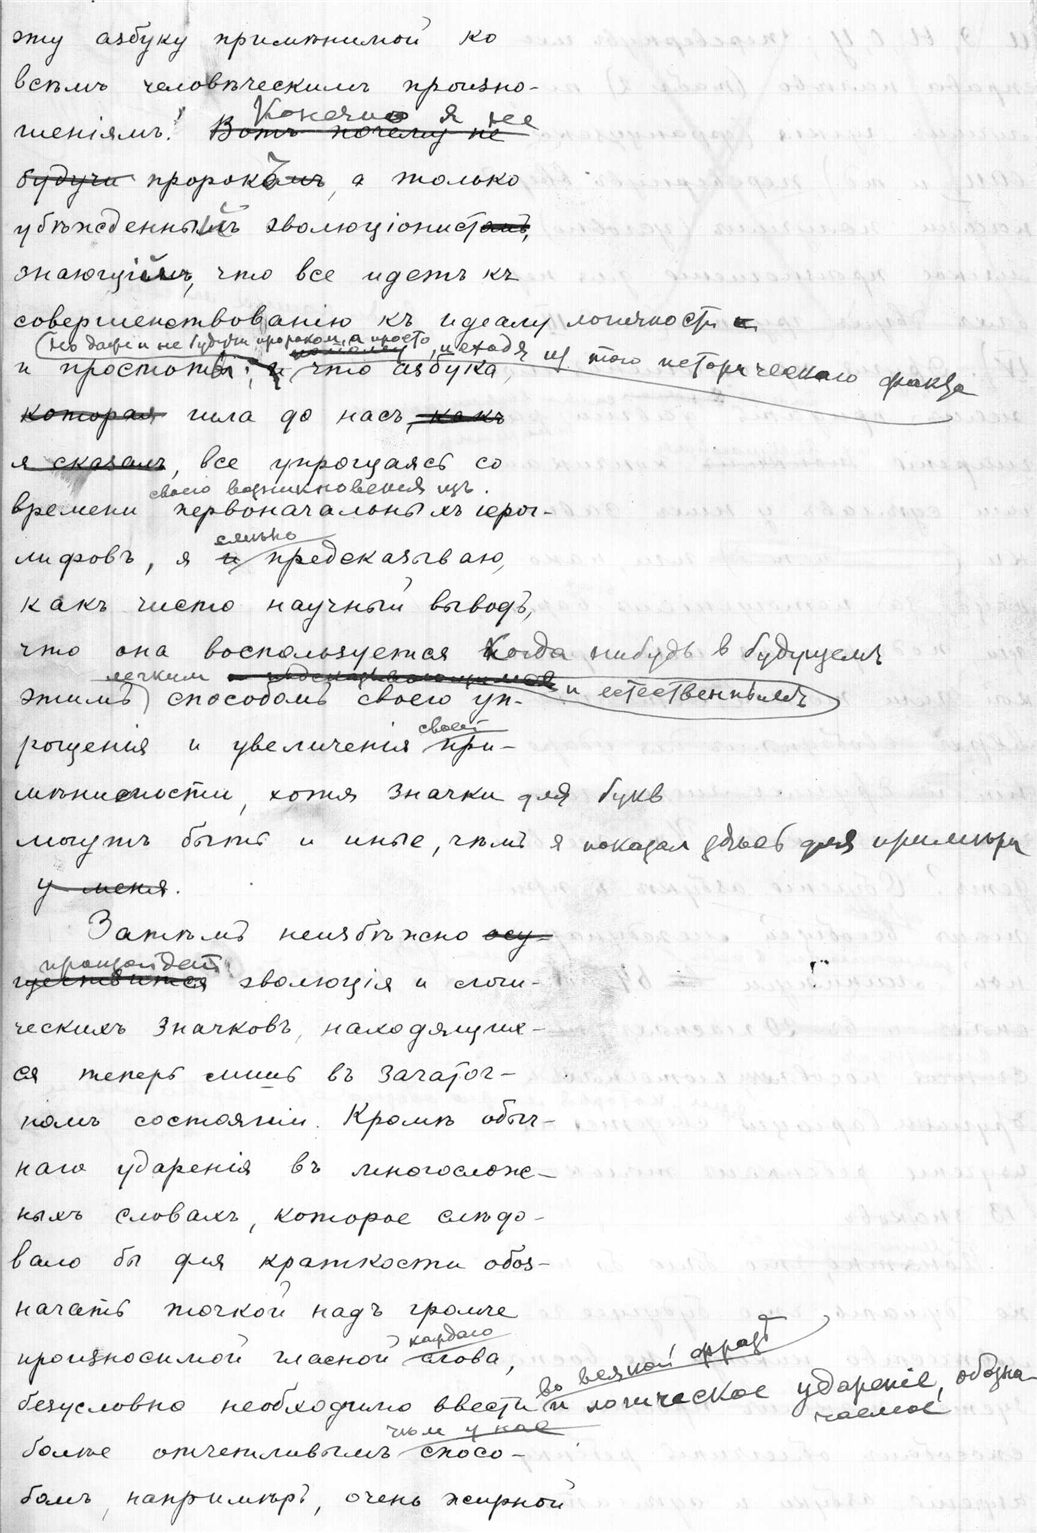 эту азбуку примѣнимой ко
всѣмъ человѣческимъ произно-
Конечно я не
шеніямъ! Вотъ почему не
будучи пророкъ, а только
убѣжденный эволюціонистъ,
знающій, что все идетъ къ
совершенствованію къ идеалу логичности и
Но даже и не будучи пророкомъ, а просто, исходя из того историческаго факта
и простоты, и что азбука,
которая шла до насъ, какъ
я сказалъ, все упрощаясь со
своего возникновения изъ
времени первоначальныхъ іерог-
смѣло
лифовъ, я и предсказываю,
какъ чисто научный выводъ,
что она воспользуется когда нибудь в будущемъ
легкимъ и естественнымъ
этимъ способомъ своего уп-
своей
рощенія и увеличенія при-
мѣнимости, хотя значки для букв
могутъ быть и иные, чѣмъ я показал здѣсь для примѣра
у меня.
Затѣмъ неизбѣжно осу-
произойдет
ществится эволюція и логи-
ческихъ значковъ, находящих-
ся теперь лишь въ зачаточ-
номъ состояніи. Кромѣ обыч-
наго ударенія въ многослож-
ныхъ словахъ, которое слѣдо-
вало бы для краткости обоз-
начать точкой надъ громче
каждаго
произносимой гласной слова,
во всякой фразѣ
безусловно необходимо ввести и логическое удареніе, обозна-
чаемое
чѣм у нас
болѣе отчетливымъ спосо-
бомъ, напримѣръ, очень жирной